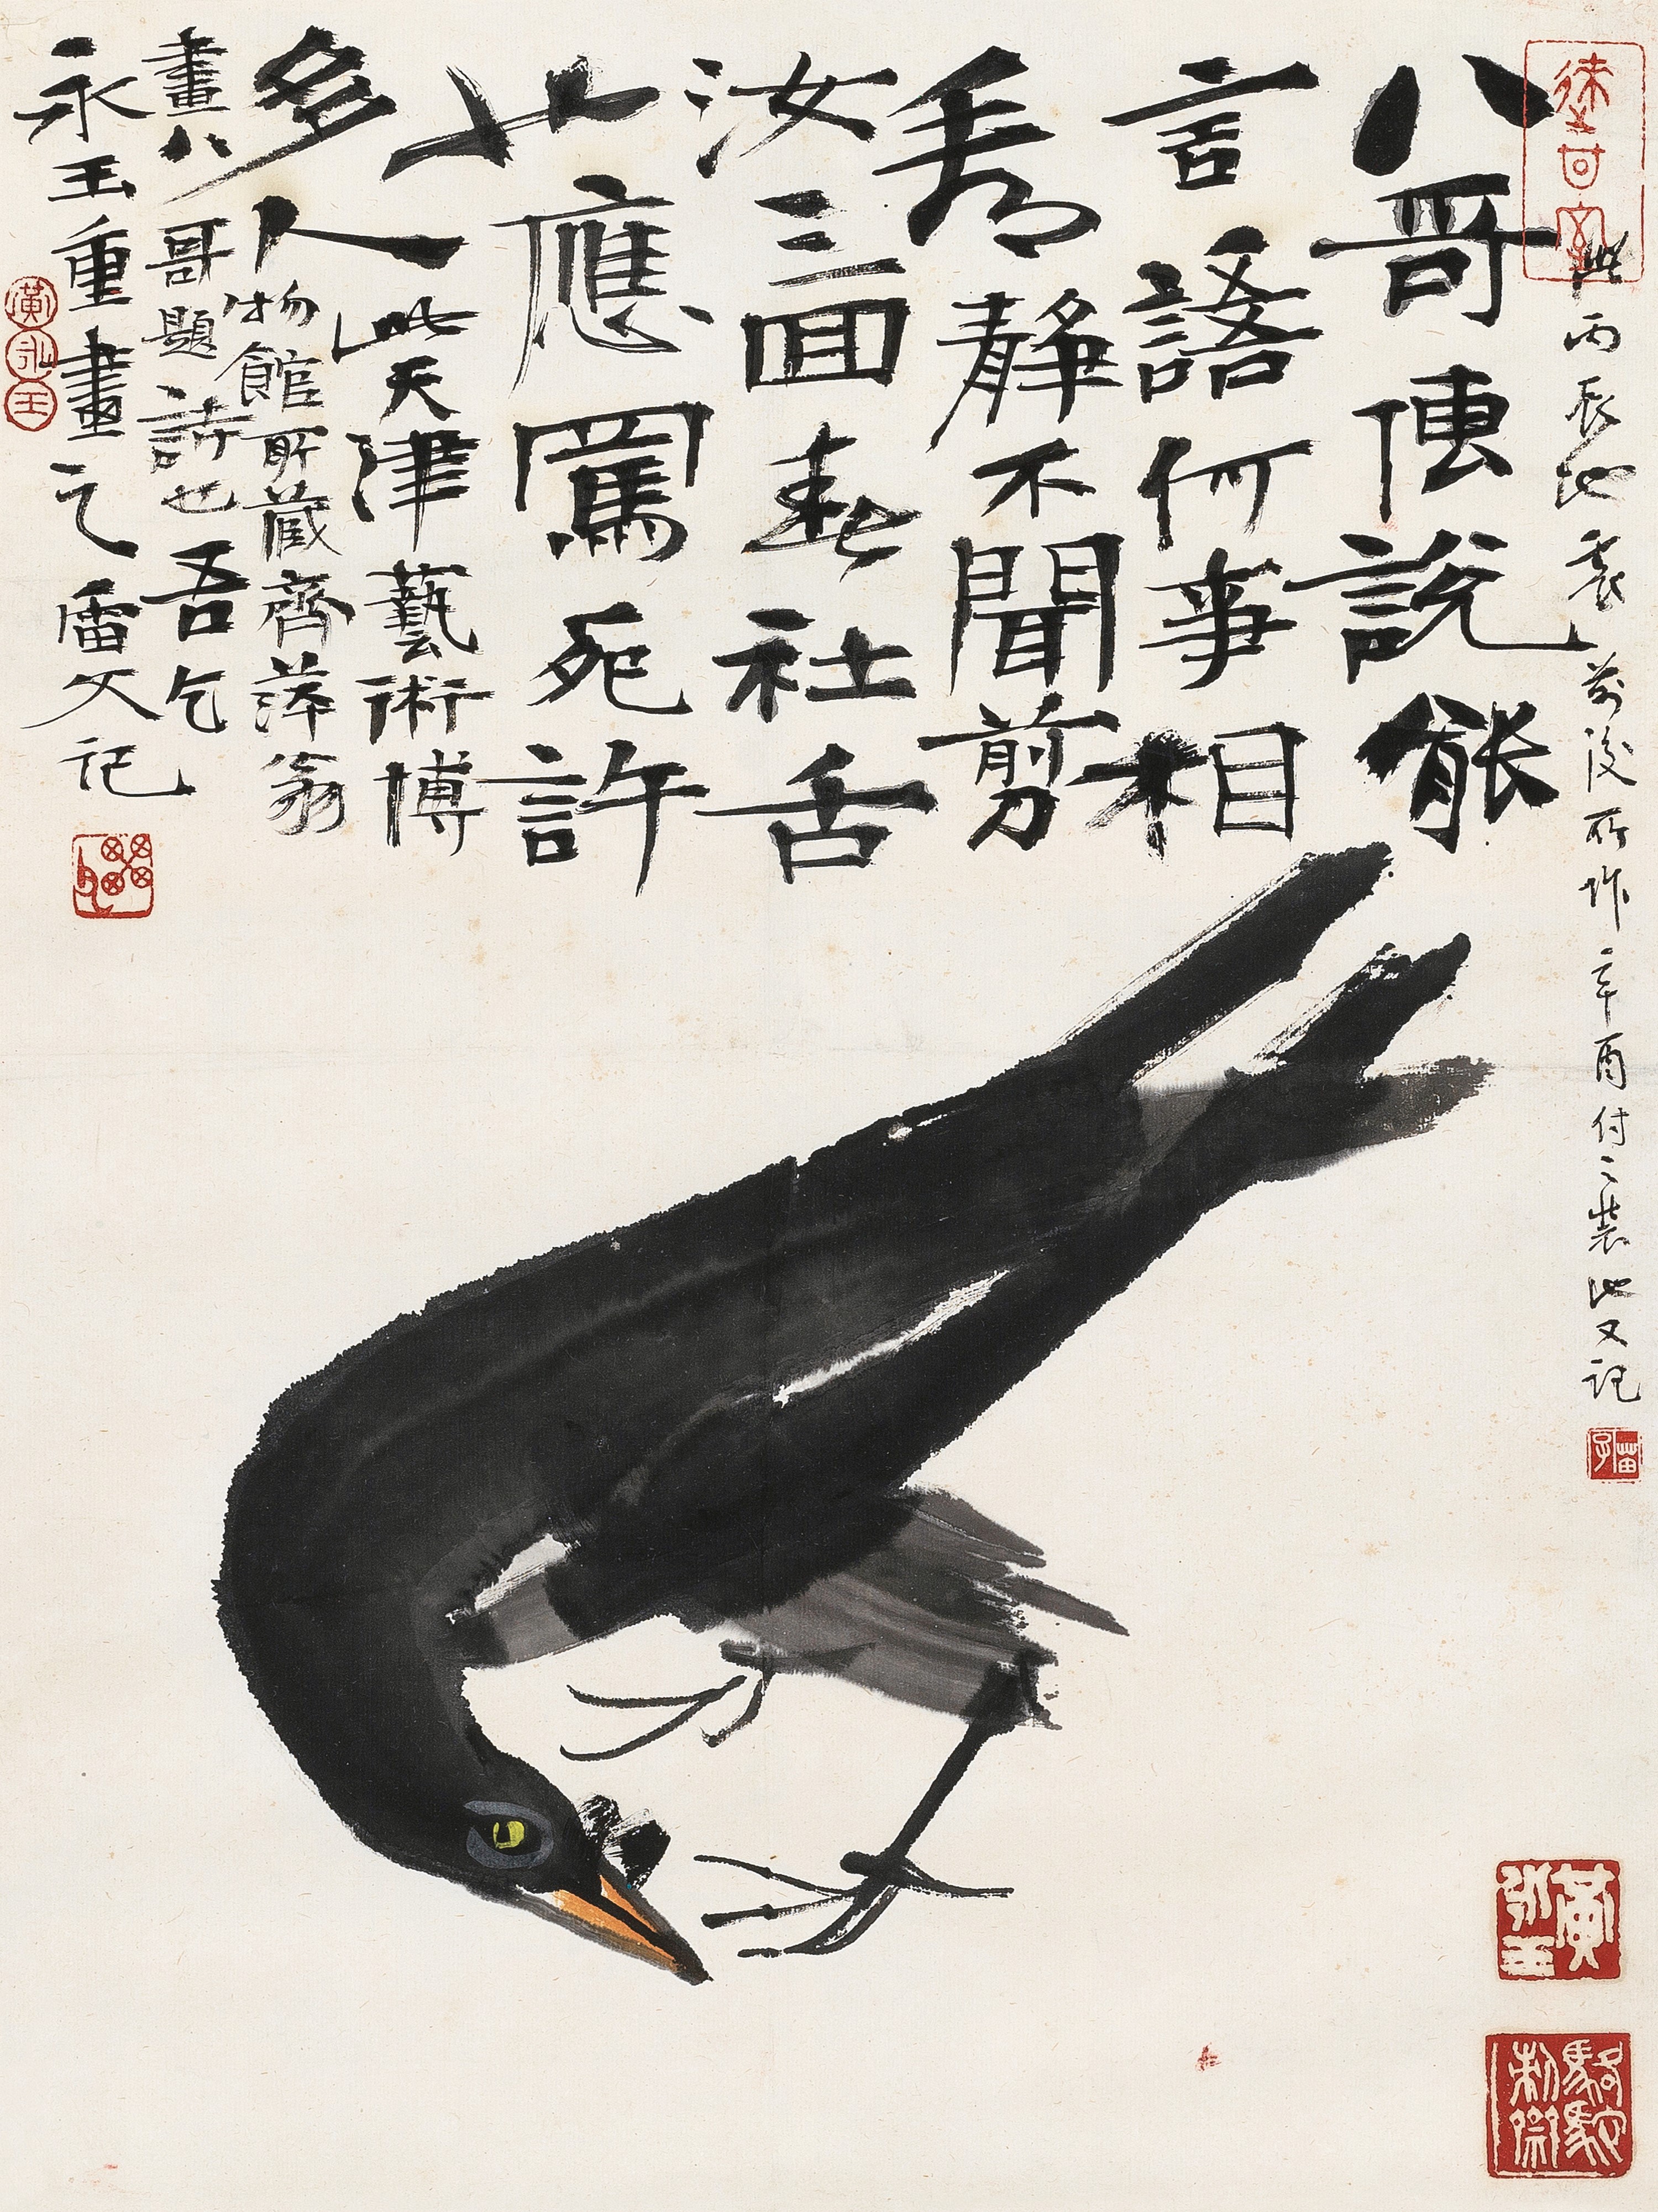 此丙辰地震前後所作辛酉付之裝池又記
八哥傳說能
言語何事相
看靜不聞剪
汝三回春社舌
也應罵死許
多人此天津藝術博
物館所藏齊萍翁
畫八哥題詩也吾乞
永玉重畫之記
黃永玉
苗子
黃永玉